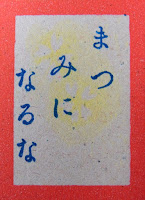 まつ
みに
なるな